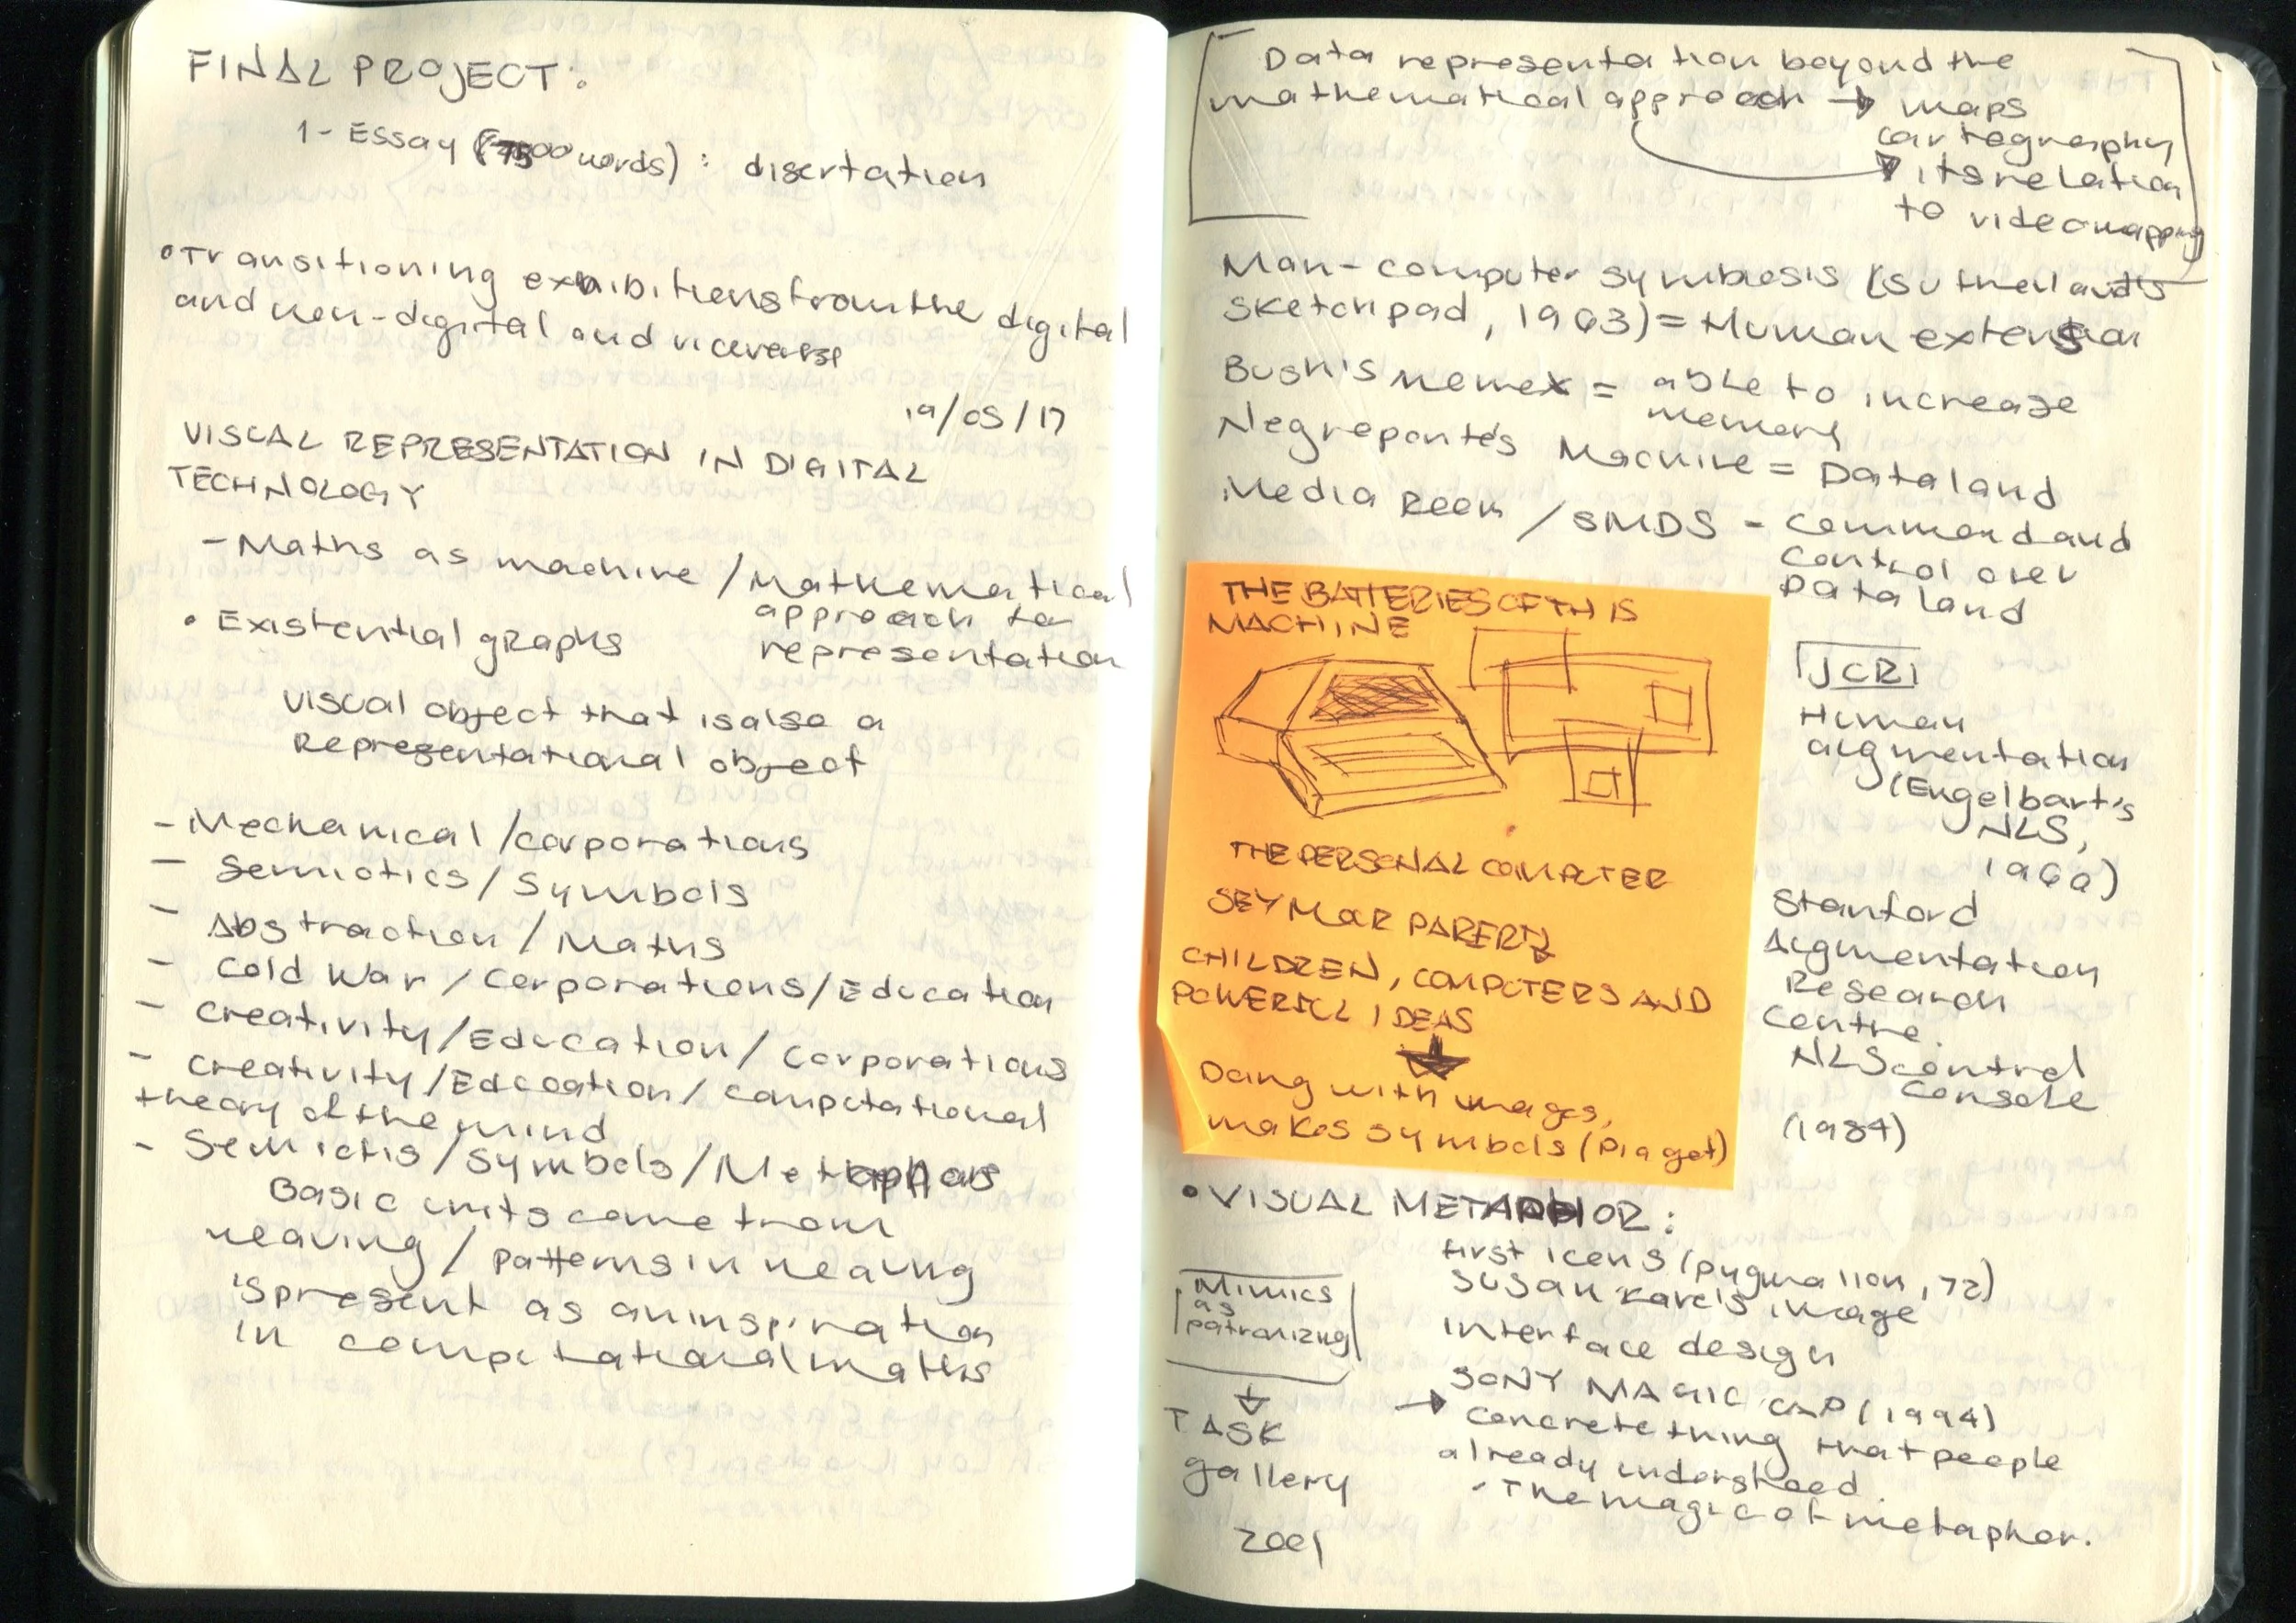 FINAL PROJECT:
1- Essay (7500 words): disertation
• Transitioning exhibitions from the digital
and non-digital and viceverse
19/05/17
VISUAL REPRESENTATION IN DIGITAL
TECHNOLOGY
- Maths as machine / Mathematical
approach to
representation
• Existential graphs
visual object that is also a
Representational object
- Mechanical / corporations
- Semiotics / Symbols
- Abstraction / Maths
- Cold War / Corporations / Education
- Creativity / Education / Corporations
- Creativity / Education / Computational
theory of the mind
- Semiotis / symbols / Metaphors
Basic units come from
weaving / patterns in weaving
is present as an inspiration
in computational maths
Data representation beyond the
mathematical approach → maps
cartography
its relation
to videomapping
Man-computer symbiosis (Sutherland's
sketchpad, 1963) = Human extension
Bush's Memex = able to increase
memory
Negreponte's Machine = Dataland
Media Room / SMDS - command and
control over
Dataland
THE BATTERIES OF THIS
MACHINE
THE PERSONAL COMPUTER
SEYMOUR PAPERT
CHILDREN, COMPUTERS AND
POWERFUL IDEAS
Doing with images,
makes symbols (Piaget)
JCRI
Human
augmentation
(Engelbart's
NLS,
1960)
Stanford
Augmentation
Research
Centre.
NLS control
console
(1984)
• VISUAL METAPHOR:
first icons (pygmalion, 72)
Susan Kare's image
interface design
SONY MAGIC CAP (1994)
→ concrete thing that people
already understood.
· The magic of metaphor.
Mimics
as
patronizing
↓
TASK
gallery
2001